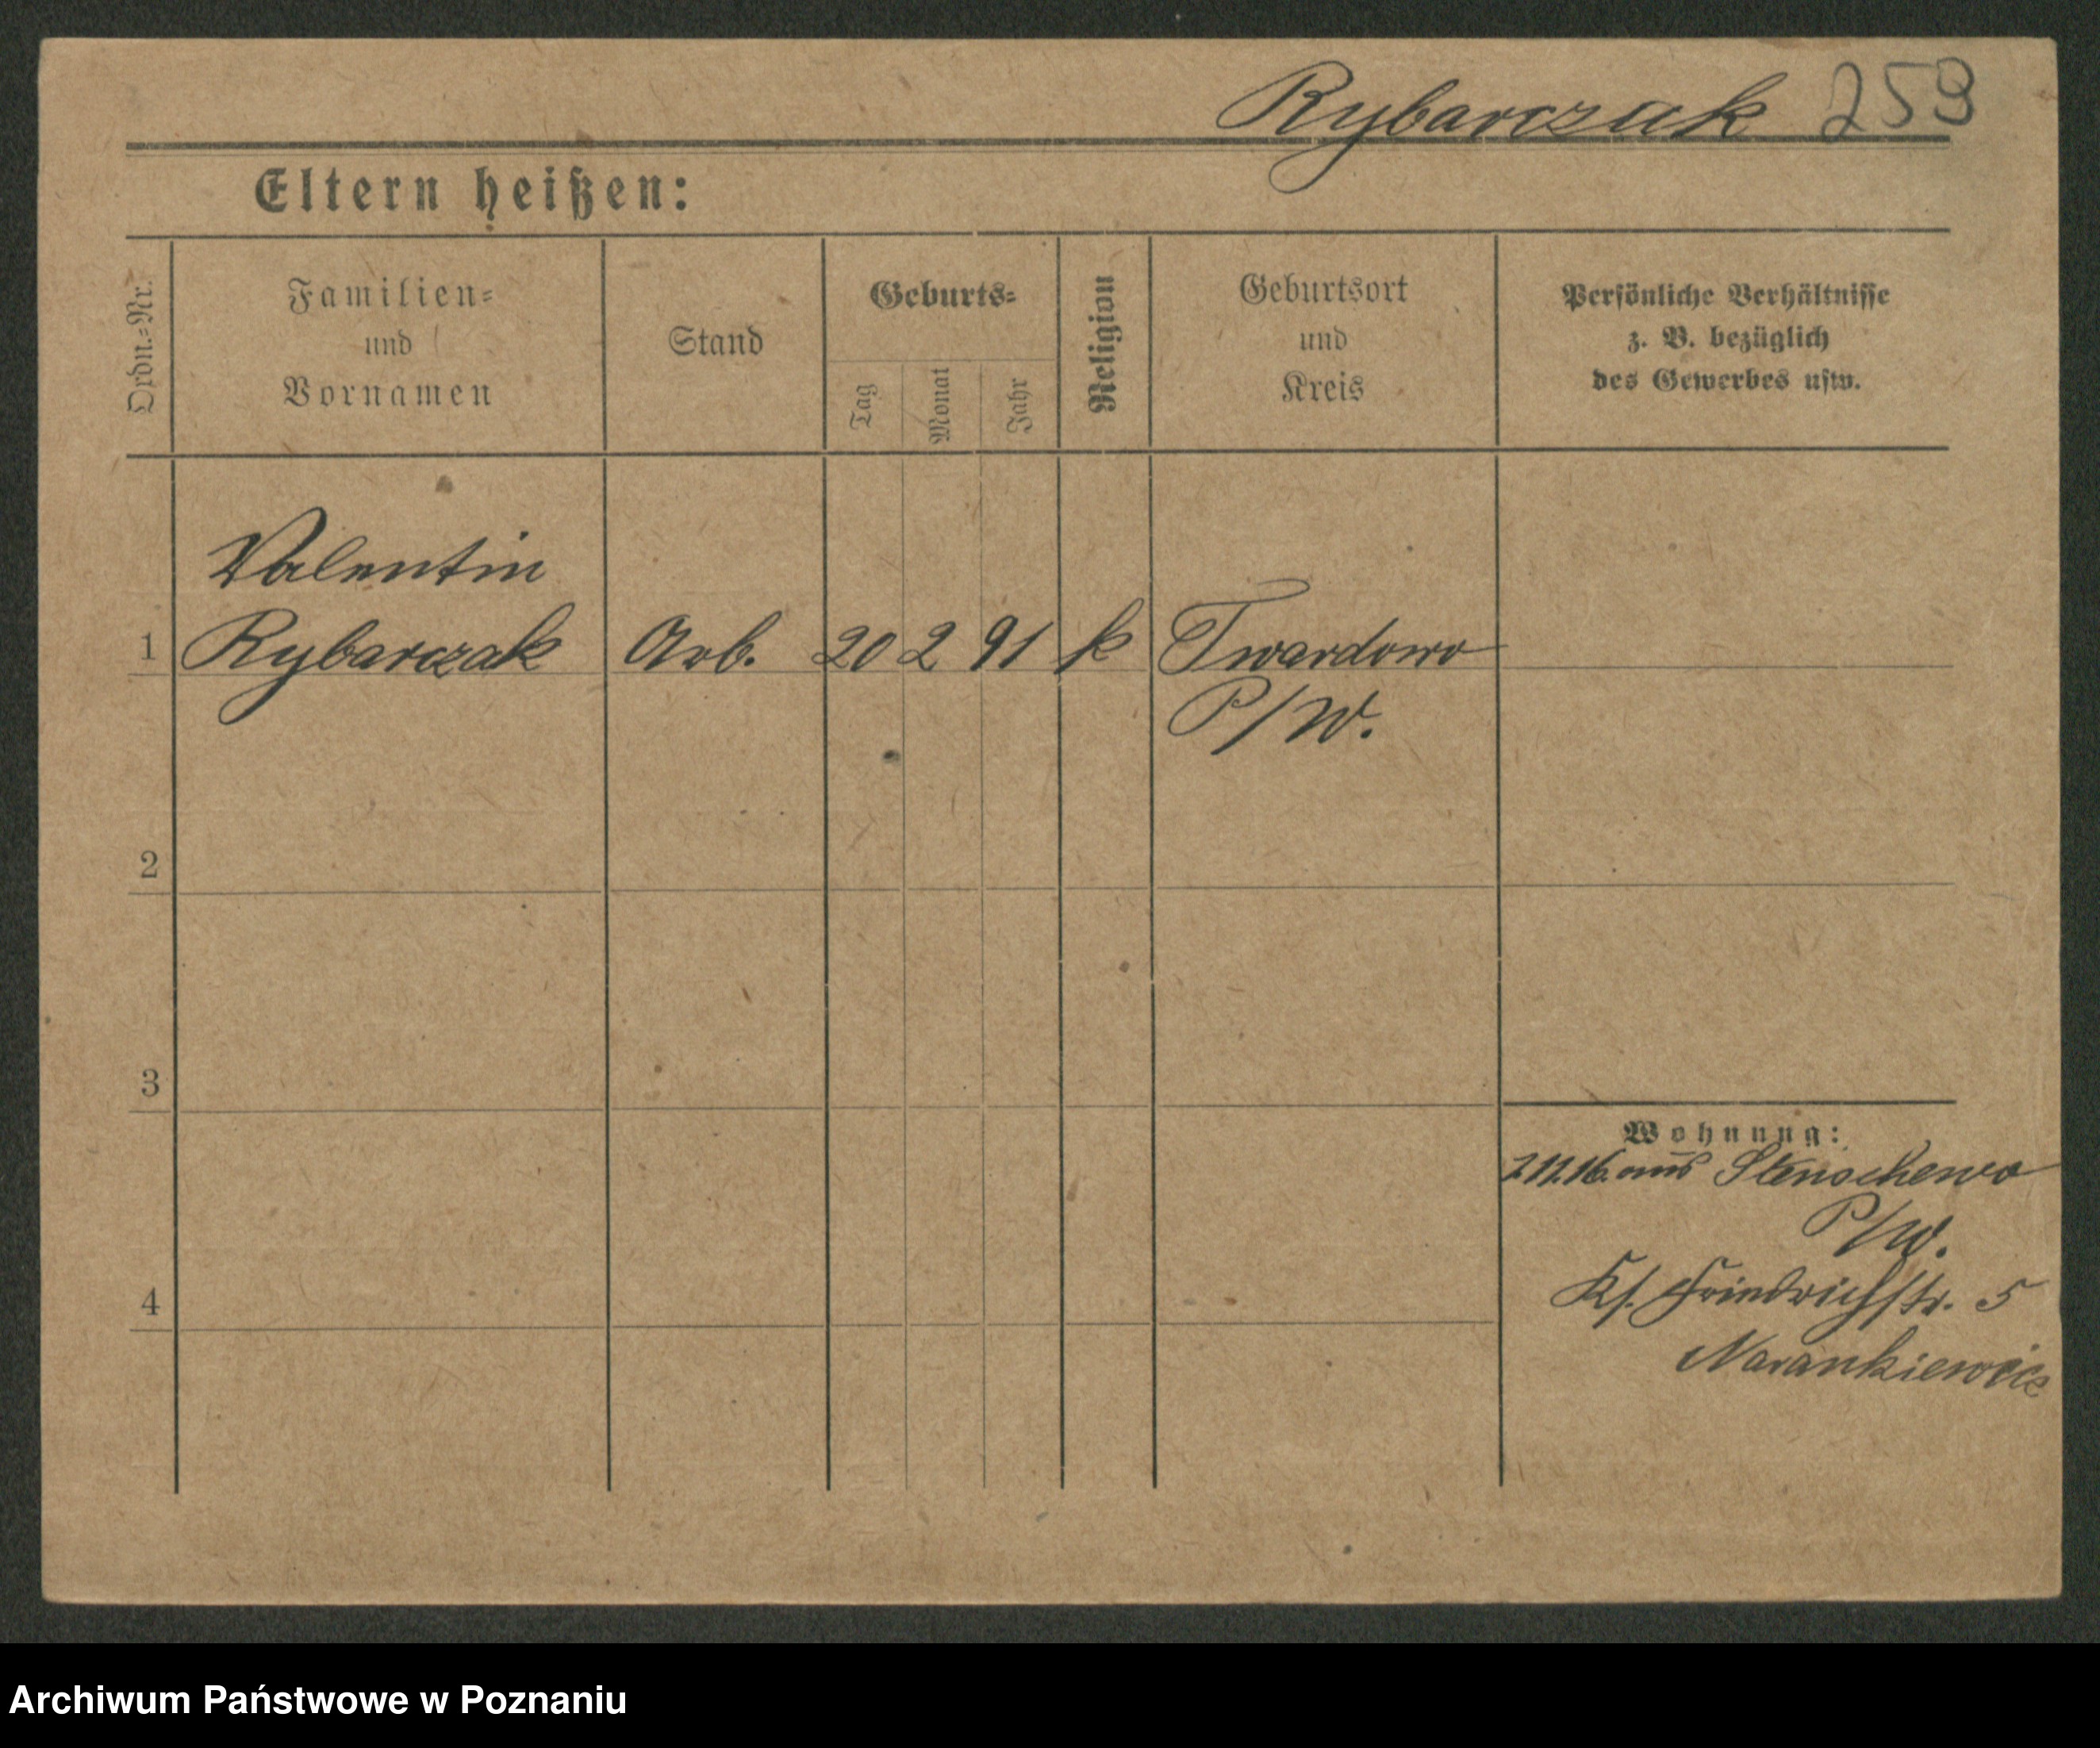 Rybarczak 259
Eltern heißen:
Ordn.-Nr.
Familien-
und
Vornamen
Stand
Geburts-
Tag
Monat
Jahr
Religion
Geburtsort
und
Kreis
Persönliche Verhältnisse
z. B. bezüglich
des Gewerbes usw.
Valentin
1 Rybarczak Arb. 20 2 91 k Twardowo
P/W.
2
3
Wohnung:
2.11.16. aus Stenschewo
P/W.
Ks. Friedrichstr. 5
4
Narankiewicz
Archiwum Państwowe w Poznaniu